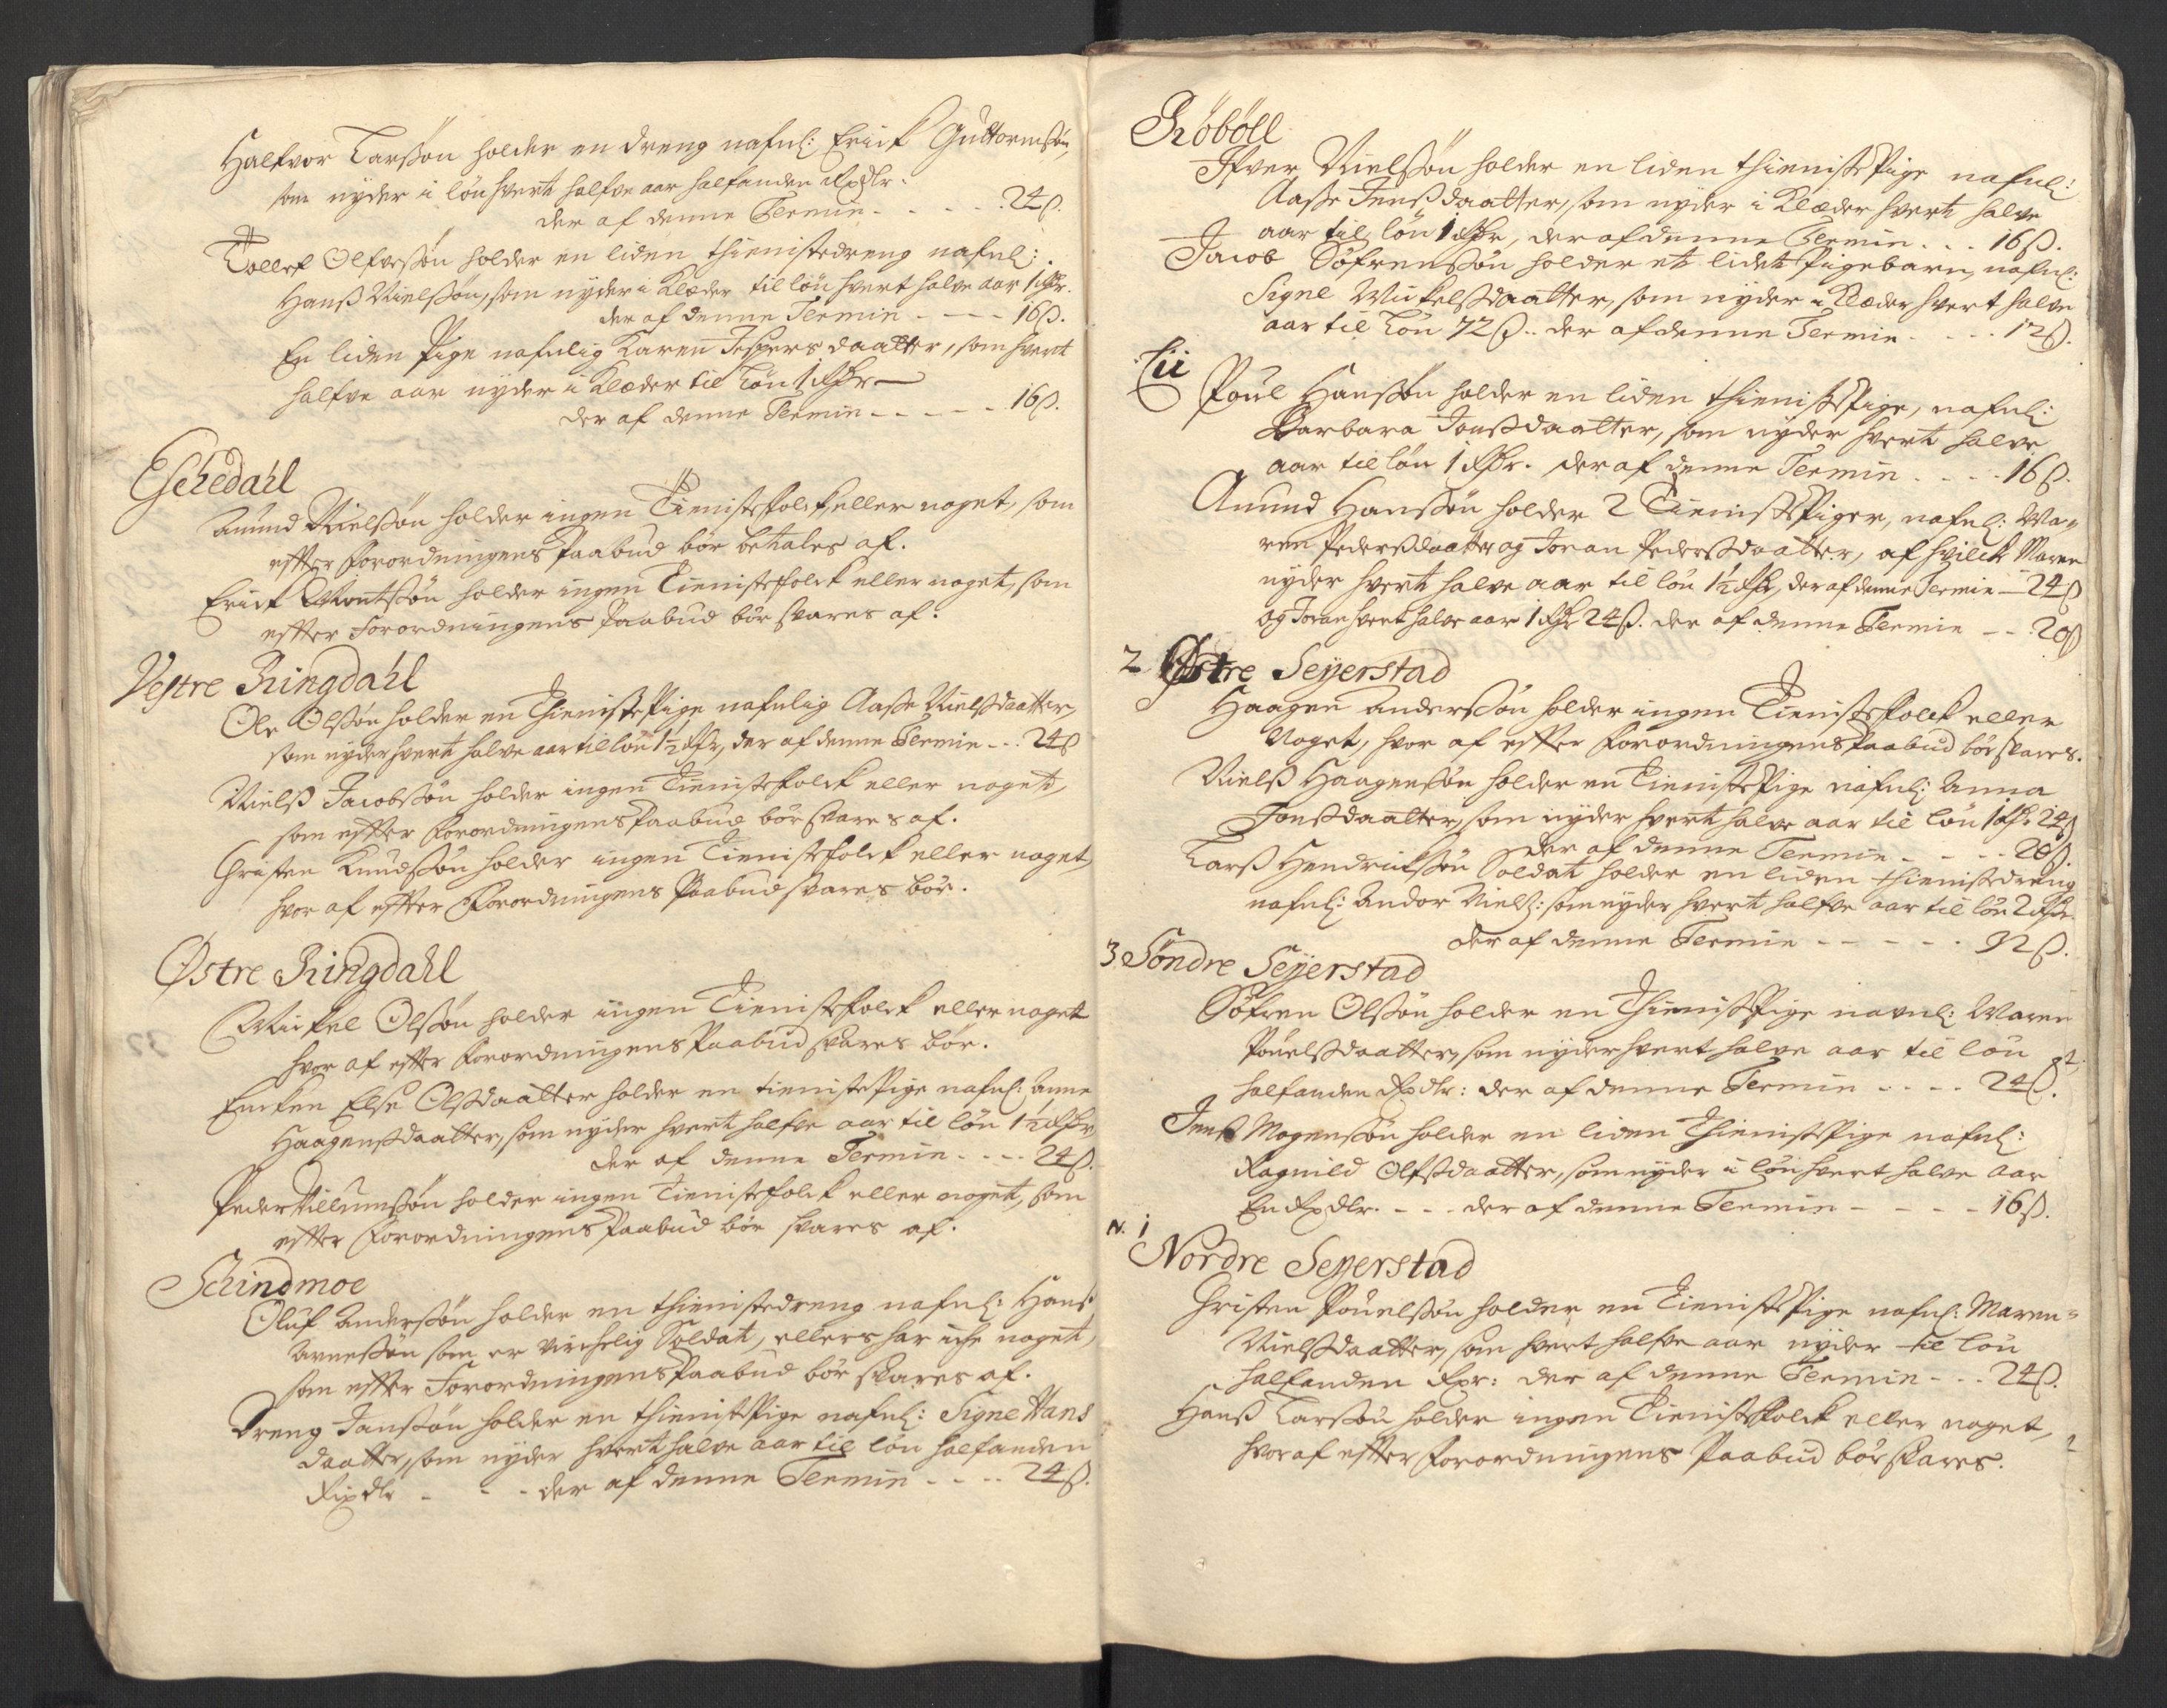 Halfvor Larssøn holder en dreng nafnl: Erick Guttormsøn,
som nyder i løn hvert halfve aar halfanden Rixdlr.
der af denne Termin - - - - - 24ß.
Tollef Olfvessøn holder en liden thienistedreng nafnl:
Hanß Nielssøn, som nyder i Klæder til løn hvert halve aar 1 Rdr.
der af denne Termin - - - - 16ß.
En liden Pige nafnlig Karen Jespers daatter, som hvert
halfve aar nyder i Klæder til Løn 1 Rdr
der af denne Termin - - - - - 16ß.
Eschedahl
Amund Nielssøn holder ingen Tienistefolck eller noget, som
effter Forordningens Paabud bør betales af.
Erick Motssøn holder ingen Tienistefolck eller noget, som
effter Forordningens Paabud bør svares af.
Vestre Ringdahl
Ole Olssøn holder en Thieniste Pige nafnlig Aasse Nielsdaatter,
som nyder hvert halve aar til løn 1½ Rdr, der af denne Termin - - 24ß
Nielß Jacobssøn holder ingen Tienistefolck eller noget,
som effter Forordningens Paabud bør svares af.
Christen Knudssøn holder ingen Tienistefolck eller noget,
hvor af effter Forordningens Paabud svares bør.
Østre Ringdahl
Mickel Olssøn holder ingen Tienistefolck eller noget
hvor af effter Forordningens Paabud svares bør.
Encken Else Olsdaatter holder en tieniste Pige nafnl: Anne
Haagensdaatter, som nyder hvert halfve aar til løn 1½ Rdr
der af denne Termin - - - - 24ß.
Peder Villumssøn holder ingen Tienistefolck eller noget, som
effter Forordningens Paabud bør svares af.
Schindmoe
Oluf Anderssøn holder en thienistedreng nafnl: Hans
Arnessøn som er virchelig Soldat, ellers har iche noget,
som effter Forordningens Paabud bør svares af.
Dreng Janssøn holder en thieniste Pige nafnl: Signe Hans
daatter, som nyder hvert halve aar til løn halfanden
Rixdlr - - - der af denne Termin - - - - 24ß.
Røbøll
Ifver Nielssøn holder en liden thieniste Pige nafnl:
Aasse Jenßdaatter, som nyder i Klæder hvert halve
aar til løn 1 Rdr, der af denne Termin - - - 16ß.
Jacob Søfrenssøn holder et lidet Pigebarn, nafnl:
Signe Mickelsdaatter, som nyder i Klæder hvert halve
aar til Løn 72ß. der af denne Termin - - - - 12ß.
Lii
Poul Hanssøn holder en liden thieniste Pige, nafnl:
Barbara Jonßdaatter, som nyder hvert halve
aar til løn 1 Rdr. der af denne Termin - - - - 16ß.
Amund Hanssøn holder 2 Tieniste Piger, nafnl: Ma-
ren Pedersdaatter og Joran Pedersdaatter, af hvilcke Maren
nyder hvert halve aar til løn 1½ Rdr, der af denne Termin - 24ß
og Joran hvert halve aar 1 Rdr 24ß. der af denne Termin - - 20ß
2 Østre Seyerstad
Haagen Anderssøn holder ingen Tienistefolck eller
Noget, hvor af effter Forordningens Paabud bør svares.
Nielß Haagenssøn holder en Tieniste Pige nafnl: Anna
Jonßdaatter, som nyder hvert halve aar til løn 1 Rdr 24ß
der af denne Termin - - - - 20ß.
Larß Hendrickssøn Soldat holder en liden thienistedreng
nafnl: Andor Niels: som nyder hvert halfve aar til løn 2 Rdr.
der af denne Termin - - - - - 32ß.
3. Søndre Seyerstad
Søfren Olssøn holder en Thieniste Pige navnl: Maren
Pouelsdaatter, som nyder hvert halve aar til løn
halfanden Rixdlr: der af denne Termin - - - - 24ß.
Jens Mogenssøn holder en liden Thieniste Pige nafnl:
Ragnild Olfsdaatter, som nyder i løn hvert halve aar
En Rixdlr. - - - der af denne Termin - - - - - 16ß.
N. 1
Nordre Seyerstad
Christen Pouelssøn holder en Tieniste Pige nafnl: Maren
Nielsdaatter, som hvert halfve aar nyder til løn
halfanden Rixr: der af denne Termin - - - 24ß.
Hanß Larssøn holder ingen Tienistefolck eller noget,
hvor af effter Forordningens Paabud bør svares.